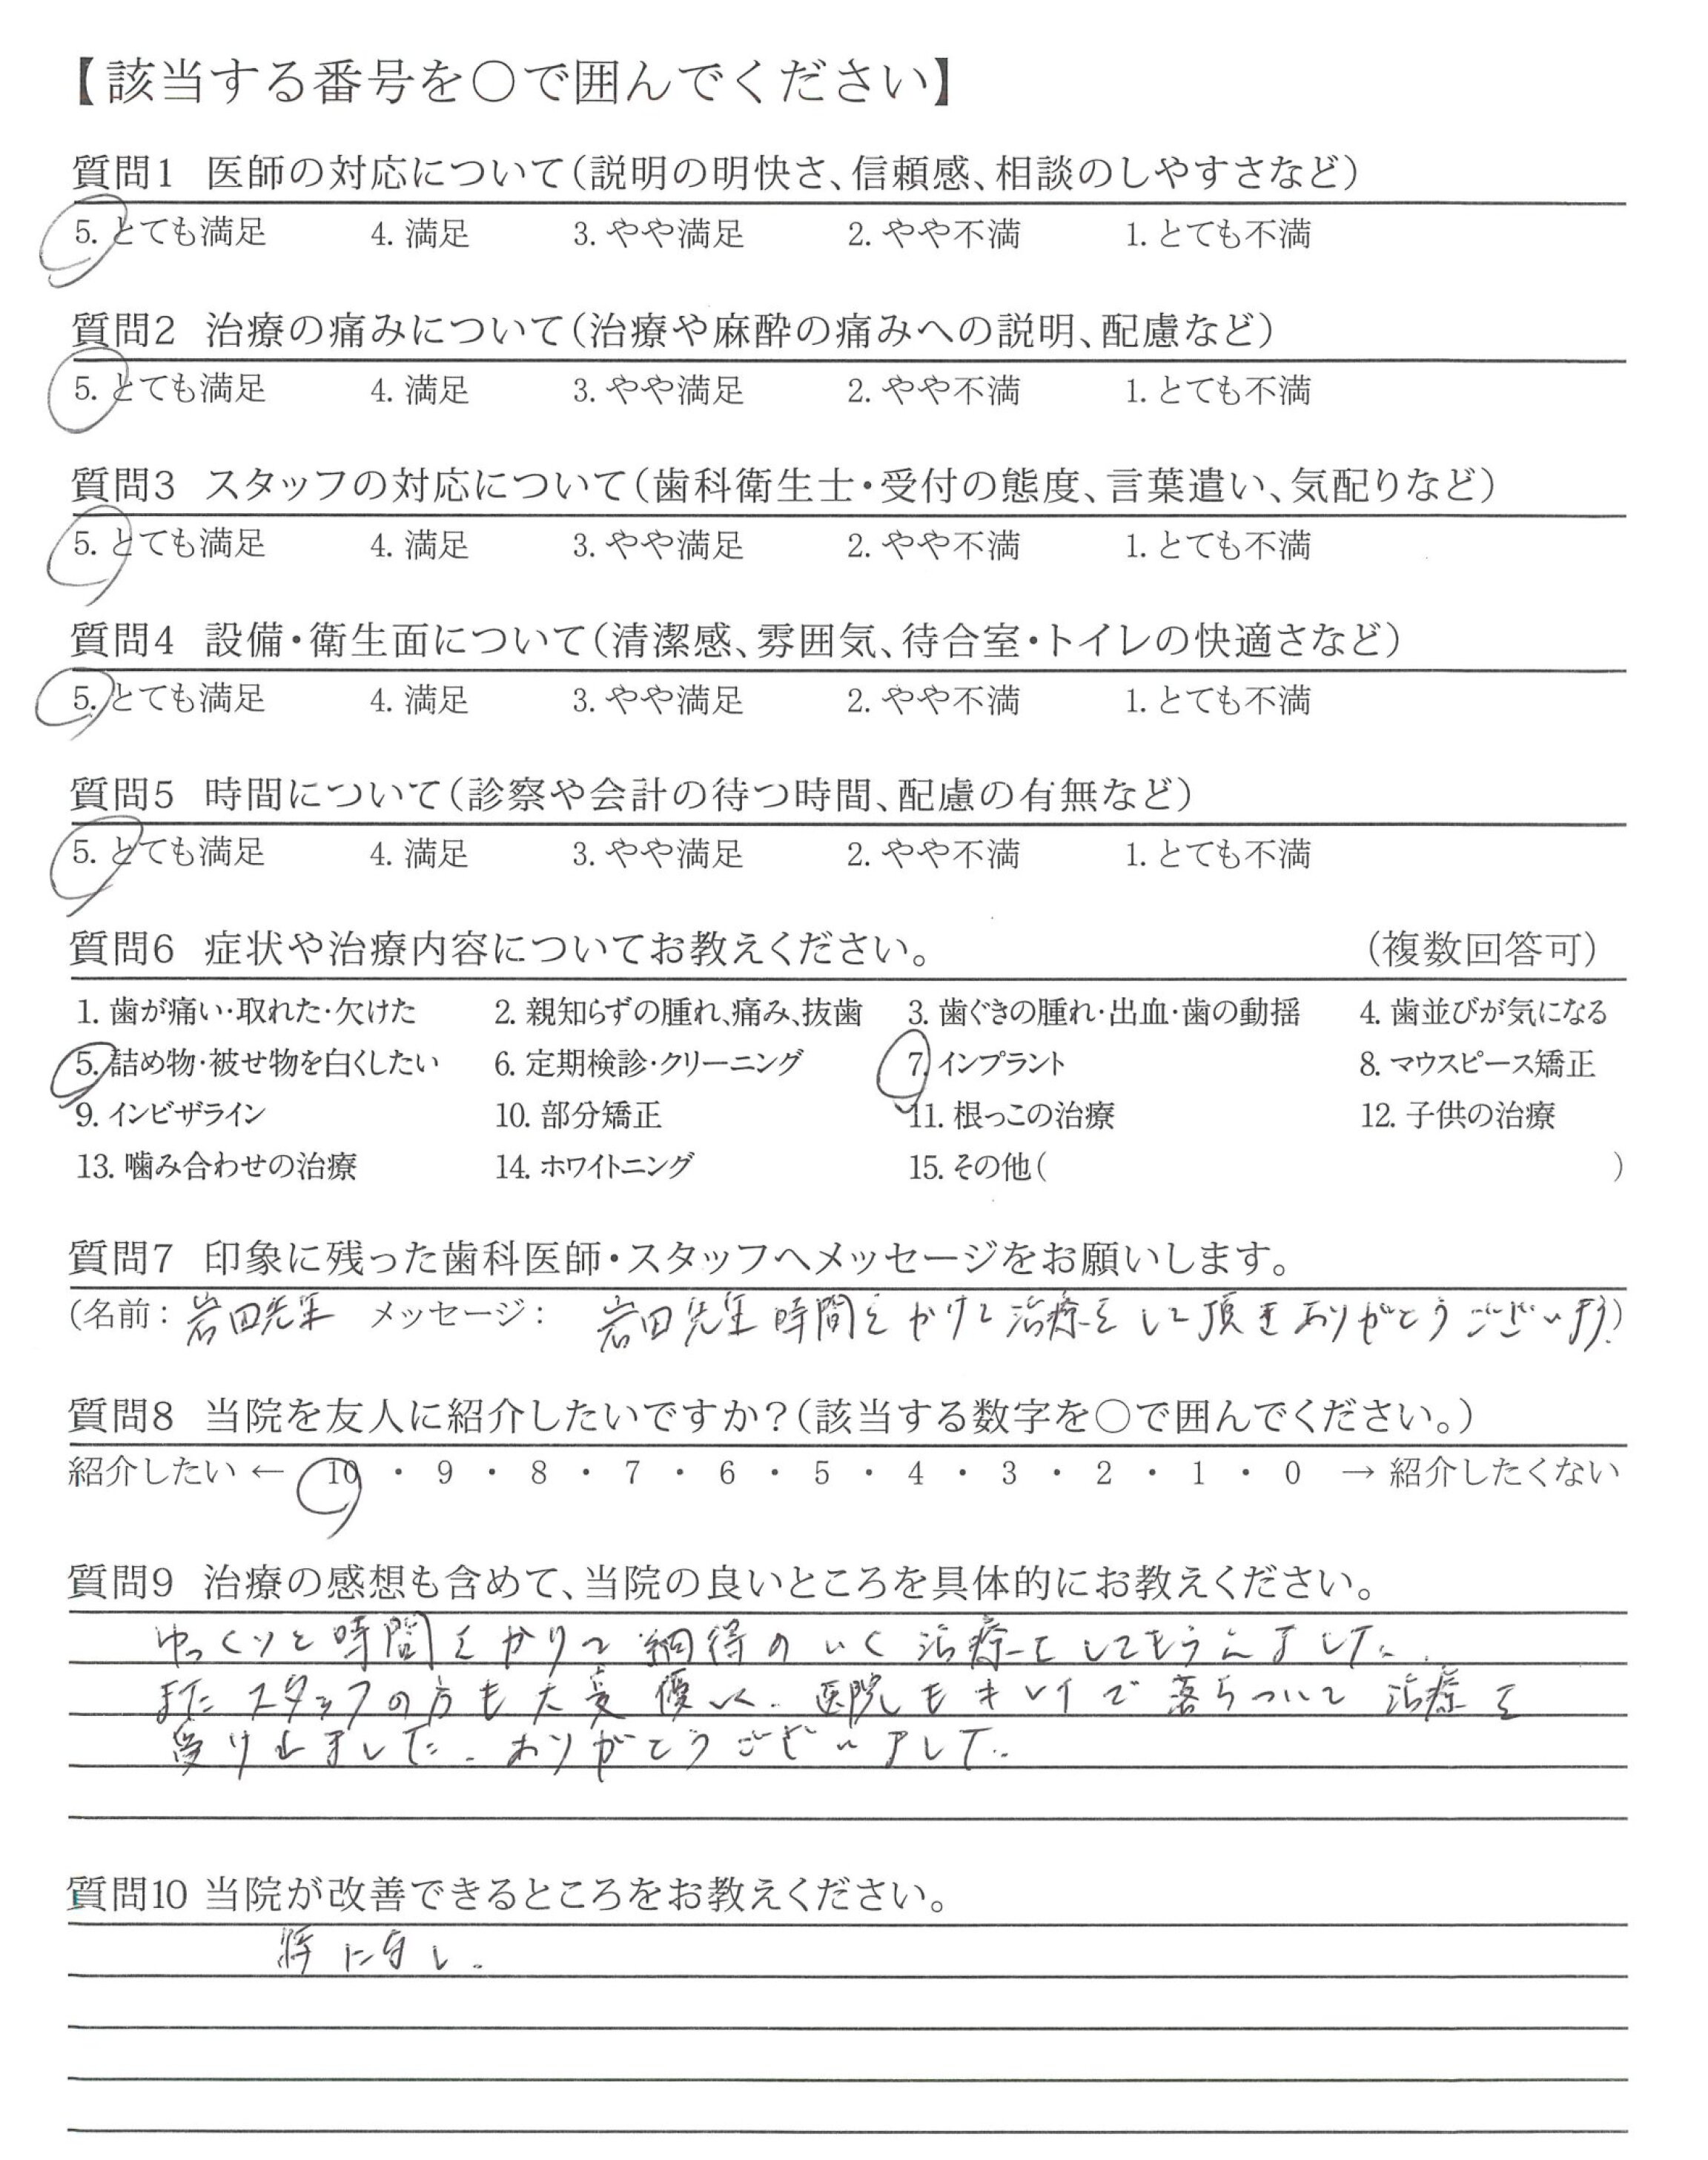 【該当する番号を○で囲んでください】
質問1 医師の対応について（説明の明快さ、信頼感、相談のしやすさなど）
5. とても満足 4. 満足 3. やや満足 2. やや不満 1. とても不満
質問2 治療の痛みについて（治療や麻酔の痛みへの説明、配慮など）
5. とても満足 4. 満足 3. やや満足 2. やや不満 1. とても不満
質問3 スタッフの対応について（歯科衛生士・受付の態度、言葉遣い、気配りなど）
5. とても満足 4. 満足 3. やや満足 2. やや不満 1. とても不満
質問4 設備・衛生面について（清潔感、雰囲気、待合室・トイレの快適さなど）
5. とても満足 4. 満足 3. やや満足 2. やや不満 1. とても不満
質問5 時間について（診察や会計の待つ時間、配慮の有無など）
5. とても満足 4. 満足 3. やや満足 2. やや不満 1. とても不満
質問6 症状や治療内容についてお教えください。 （複数回答可）
1. 歯が痛い・取れた・欠けた 2. 親知らずの腫れ、痛み、抜歯 3. 歯ぐきの腫れ・出血・歯の動揺 4. 歯並びが気になる
5. 詰め物・被せ物を白くしたい 6. 定期検診・クリーニング 7. インプラント 8. マウスピース矯正
9. インビザライン 10. 部分矯正 11. 根っこの治療 12. 子供の治療
13. 噛み合わせの治療 14. ホワイトニング 15. その他（ ）
質問7 印象に残った歯科医師・スタッフへメッセージをお願いします。
（名前：岩田先生 メッセージ： 岩田先生 時間をかけて治療をして頂きありがとうございます）
質問8 当院を友人に紹介したいですか？（該当する数字を○で囲んでください。）
紹介したい ← 10 ・ 9 ・ 8 ・ 7 ・ 6 ・ 5 ・ 4 ・ 3 ・ 2 ・ 1 ・ 0 → 紹介したくない
質問9 治療の感想も含めて、当院の良いところを具体的にお教えください。
ゆっくりと時間をかけて納得のいく治療をしてもらえました。
またスタッフの方も大変優しく、医院もキレイで落ちついて治療を
受けれました。ありがとうございました。
質問10 当院が改善できるところをお教えください。
特になし。